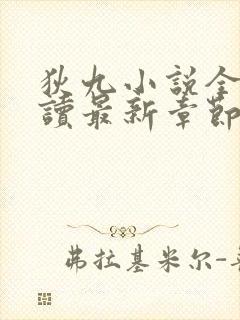 狄九小说全
讀最新章節
弗拉基米尔-